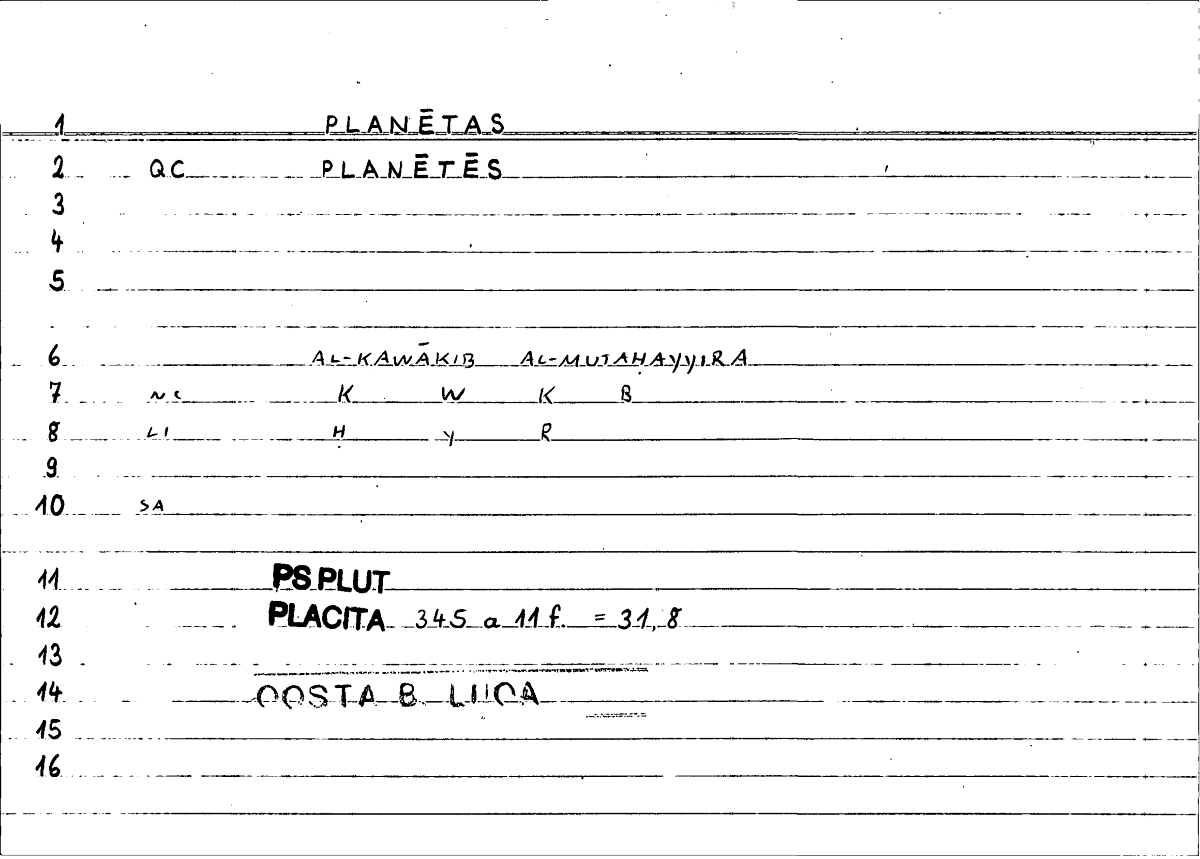 1 PLANĒTAS
2 QC PLANĒTĒS
3
4
5
6 AL-KAWĀKIB AL-MUTAḤAYYIRA
7 NC K W K B
8 LI Ḥ Y R
9
10 SA
11 PS PLUT
12 PLACITA 345 a 11 f. = 31,8
13
14 QOSTA B. LUQA
15
16